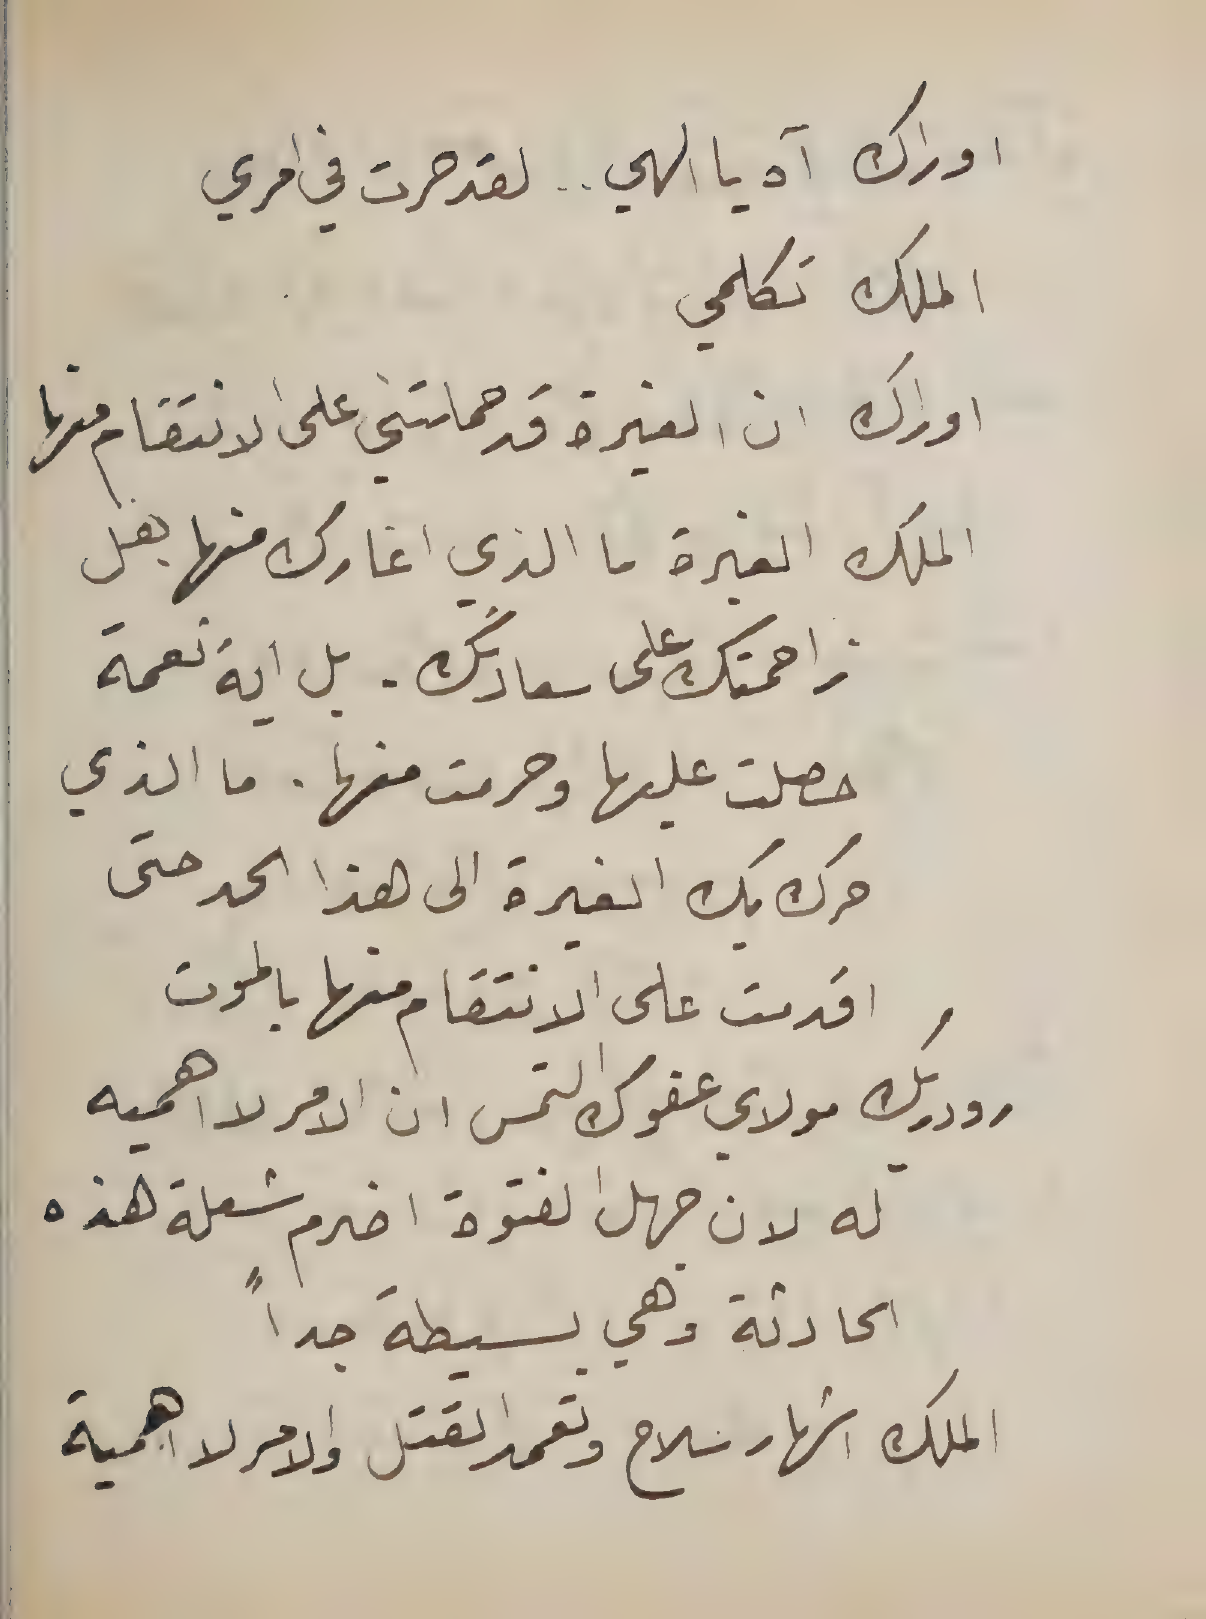 اوراك آه يا الهي .. لقد حرت في امري
الملك تكلمي
اوراك ان الغيرة قد حملتني على الانتقام منها
الملك الغيرة ما الذي اغارك منها هل
زاحمتك على سعادتك . بل اية نعمة
حصلت عليها وحرمت منها . ما الذي
حرك بك الغيرة الى هذا الحد حتى
اقدمت على الانتقام منها بالموت
رودريك مولاي عفوك التمس ان الامر لا اهميه
له لان جهل الفتوة اضرم شعلة هذه
الحادثة وهي بسيطة جداً
الملك اشهار سلاح وتعمد القتل والامر لا اهمية